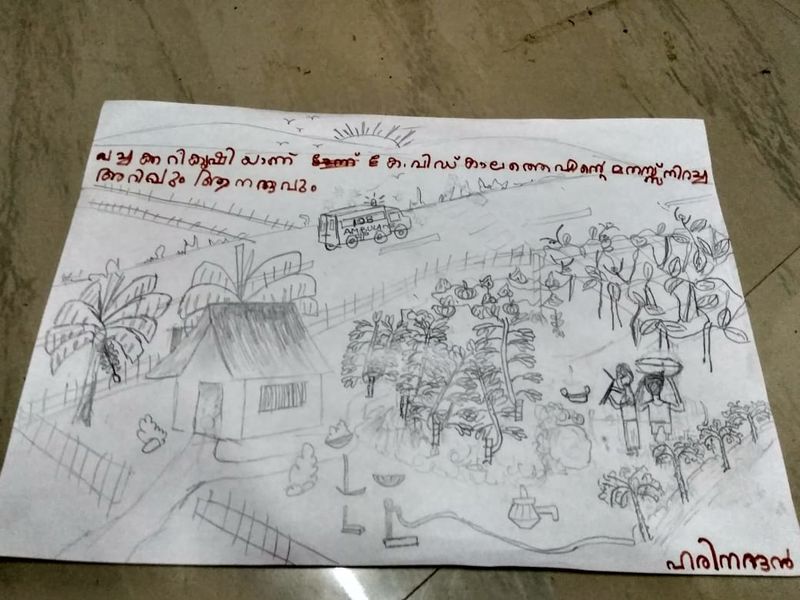 പച്ചക്കറികൃഷിയാണ് കോവിഡ് കാലത്തെ എന്റെ മനസ്സ് നിറച്ച
അറിവും ആനന്ദവും
108
AMBULANCE
ഹരിനന്ദൻ